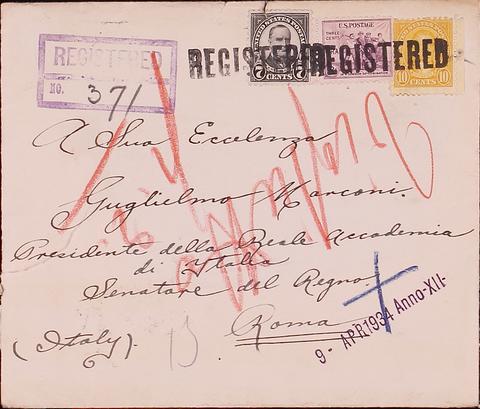 REGISTERED
NO. 371
UNITED STATES POSTAGE
7 CENTS 7
U.S. POSTAGE
THREE CENTS
10 CENTS 10
REGISTERED
REGISTERED
A Sua Eccelenza
Guglielmo Marconi.
Presidente della Reale Accademia
di Italia
Senatore del Regno.
Roma
(Italy).
9- APR 1934 Anno-XII-